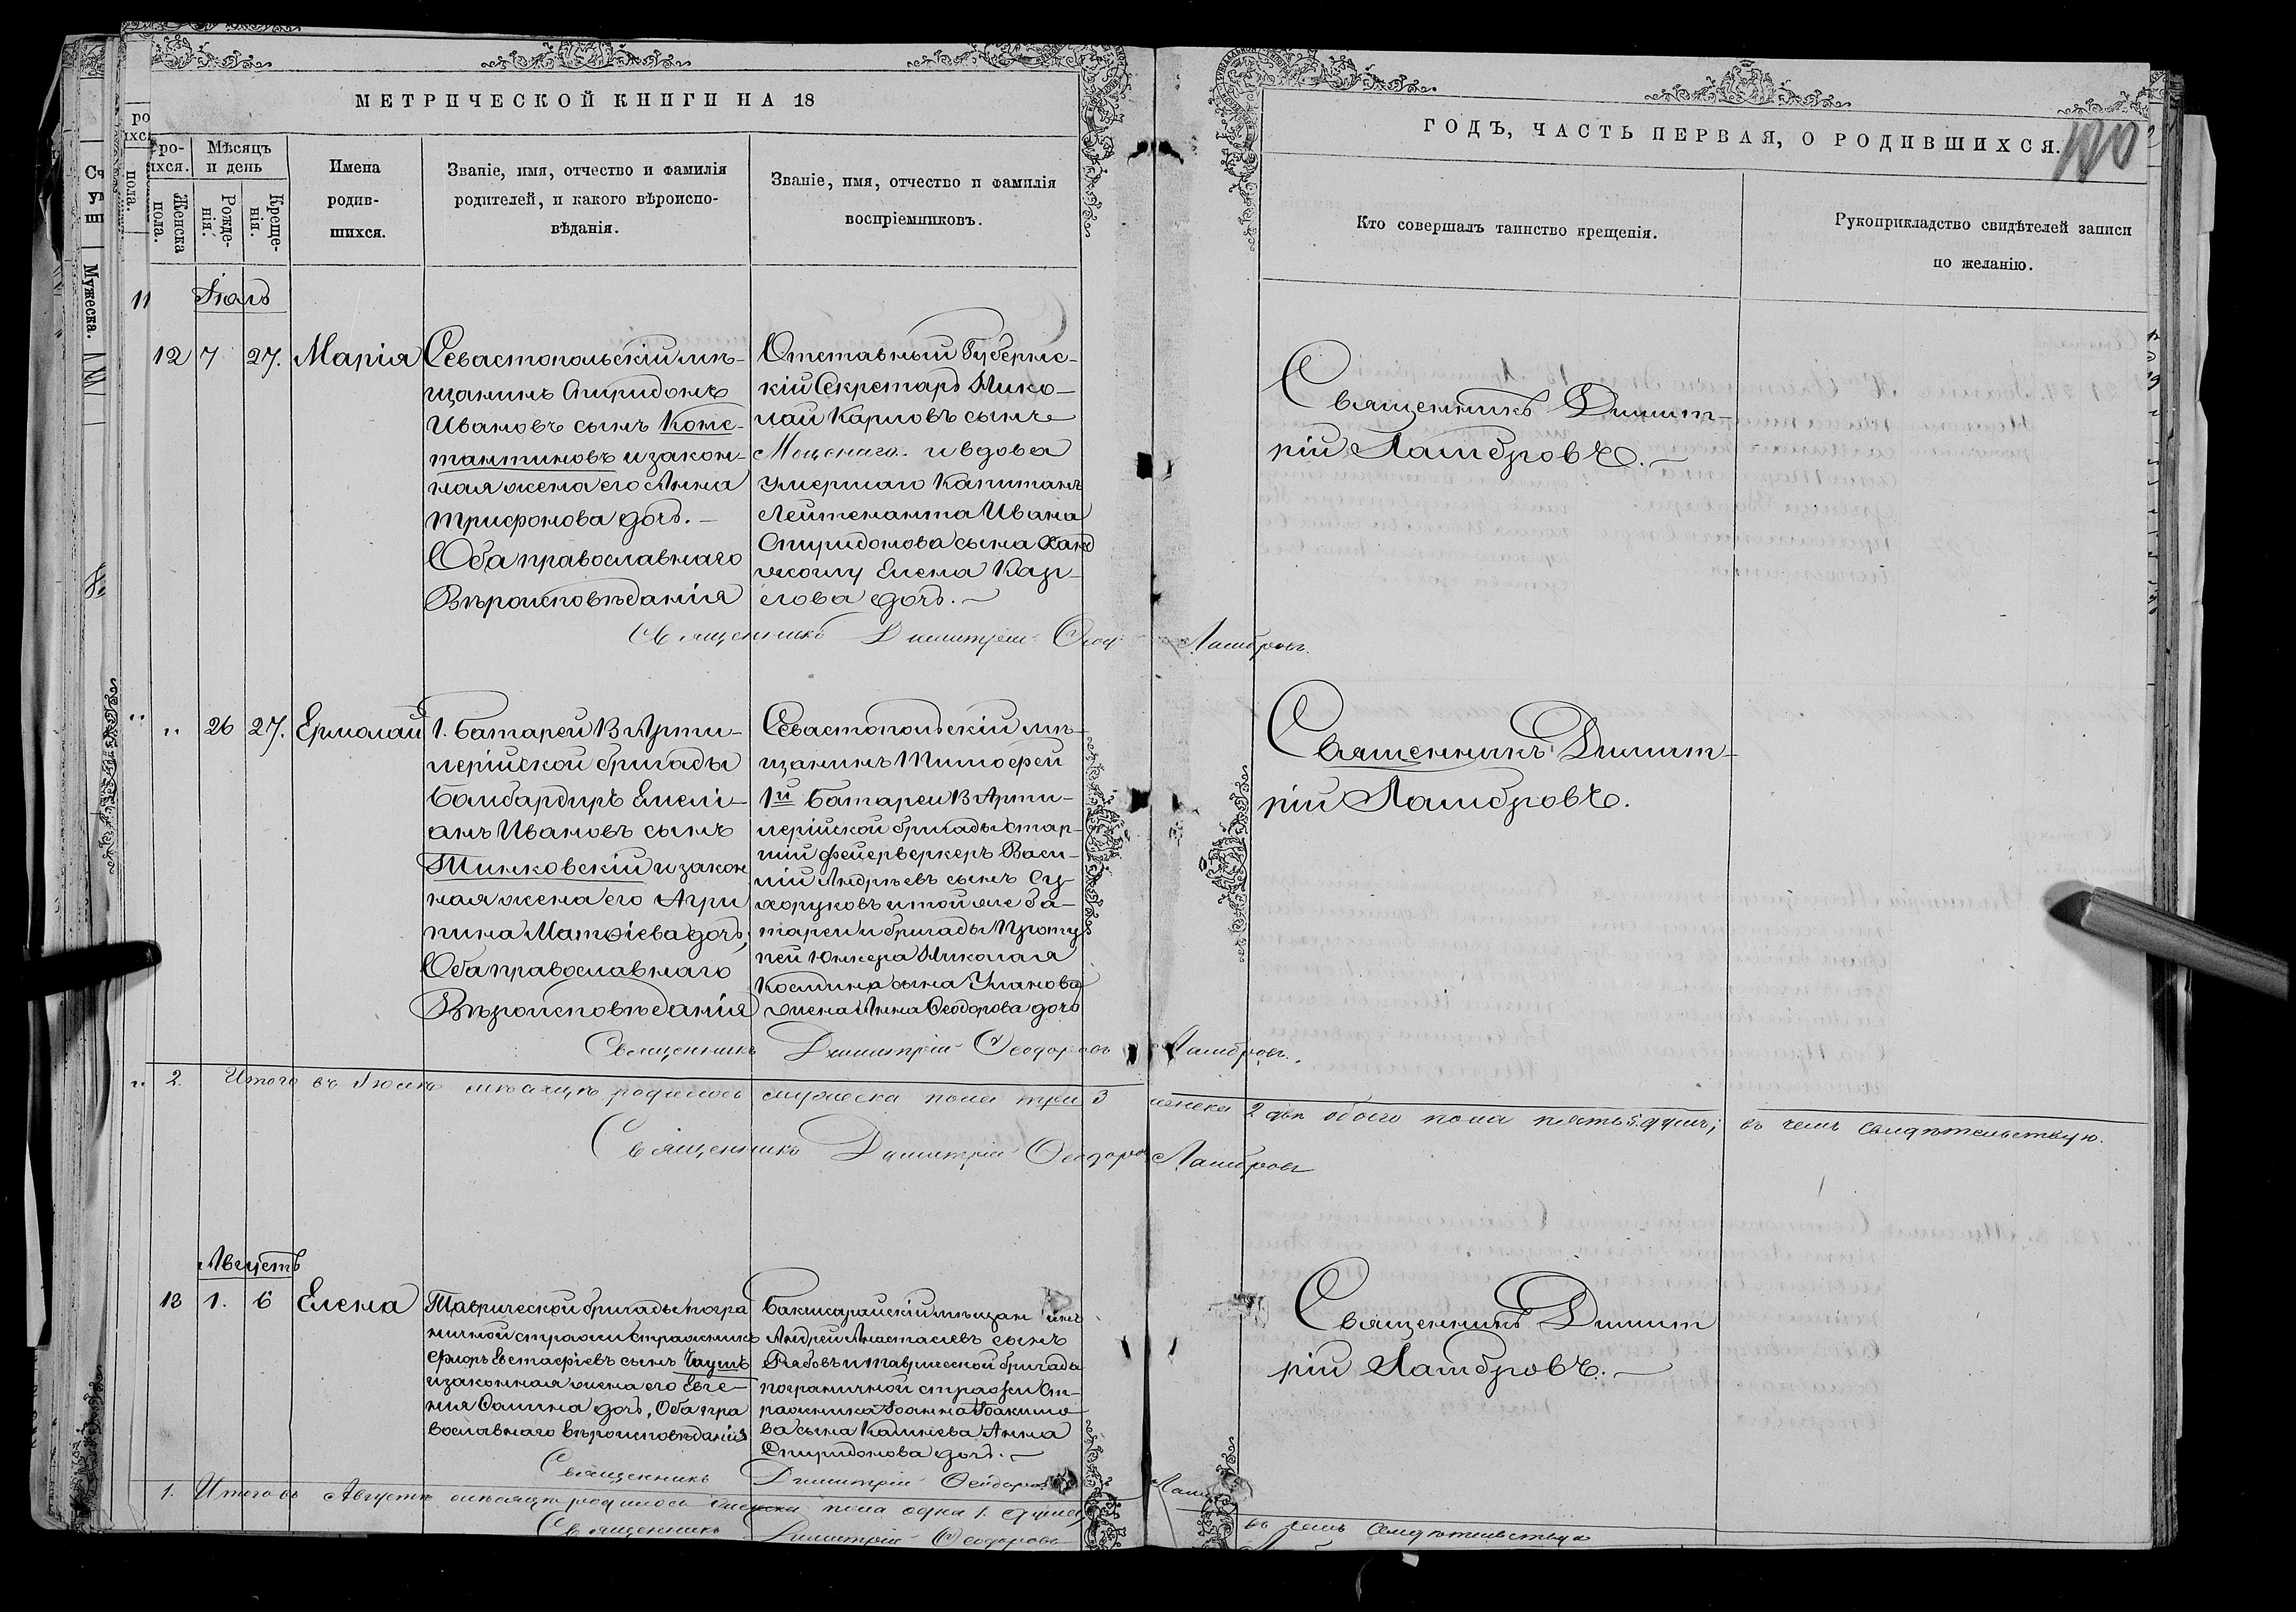 МЕТРИЧЕСКОЙ КНИГИ НА 18
ГОДЪ, ЧАСТЬ ПЕРВАЯ, О РОДИВШИХСЯ.
Мѣсяцъ
и день
Женска
пола.
Рожде-
нія.
Креще-
нія.
Имена
родив-
шихся.
Званіе, имя, отчество и фамилія
родителей, и какого вѣроиспо-
вѣданія.
Званіе, имя, отчество и фамилія
воспріемниковъ.
Кто совершалъ таинство крещенія.
Рукоприкладство свидѣтелей записи
по желанію.
Мужеска.
11
Іюль
12 7 27. Марія
Севастопольскій мѣ-
щанинъ Спиридонъ
Ивановъ сынъ Конс-
тантиновъ и закон-
ная жена его Анна
Трифонова дочь.
Оба православнаго
Вѣроисповѣданія
Отставный Губернс-
кій Секретарь Нико-
лай Карловъ сынъ
и вдова
умершаго Капитанъ
Лейтенанта Ивана
Спиридонова сына
Елена Кар-
лова дочь.
Священникъ Димит-
рій Ламбровъ.
Священникъ Димитрій Ѳеод Ламбровъ.
" 26 27. Ермолай
1. батареи 13 Арти-
лерійской бригады
Бомбардиръ Емелі-
анъ Ивановъ сынъ
Шинковскій и закон
ная жена его Агри
пина Матѳіева дочь,
Оба православнаго
Вѣроисповѣданія
Севастопольскій мѣ-
щанинъ Тимофей
1й батареи 13 Арти-
лерійской бригады стар-
шій фейерверкеръ Васи-
лій Андреевъ сынъ Су-
хоруковъ и той же ба-
тареи и бригады Порту
пей Юнкера Николая
Космина сына Уланова
жена Анна Ѳеодорова дочь
Священникъ Димит-
рій Ламбровъ.
Священникъ Димитрій Ѳеодоровъ Ламбровъ.
" 2. Итого въ Іюлѣ мѣсяцѣ родилось мужеска пола три 3 женска 2 двѣ обоего пола пять 5. душъ; въ чемъ свидѣтельствую.
Священникъ Димитрій Ѳеодоровъ Ламбровъ
Августъ
13 1. 6 Елена
Таврической бригады погра
ничной стражи Стражникъ
Флоръ Евстафіевъ сынъ Чаушъ
и законная жена его Евге-
нія Савина дочь, Оба пра
вославнаго вѣроисповѣданія
Бакшсарайскій мѣщанинъ
Андрей Анастасіевъ сынъ
Рябовъ и таврической бригады
пограничной стражи Ст-
ражника Іоанна Іоакимо
ва сына Калніева Анна
Спиридонова дочь.
Священникъ Димит
рій Ламбровъ.
Священникъ Димитрій Ѳеодоровъ
1. Итого въ Августѣ мѣсяцѣ родилось женска пола одна 1. душа, въ чемъ свидѣтельствую
Священникъ Димитрій Ѳеодоровъ